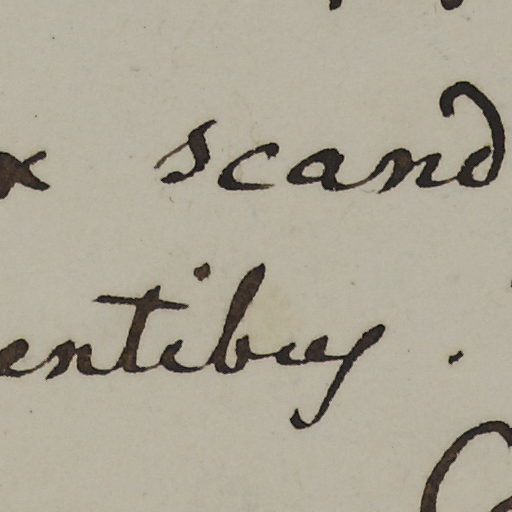 x scand
entibus.